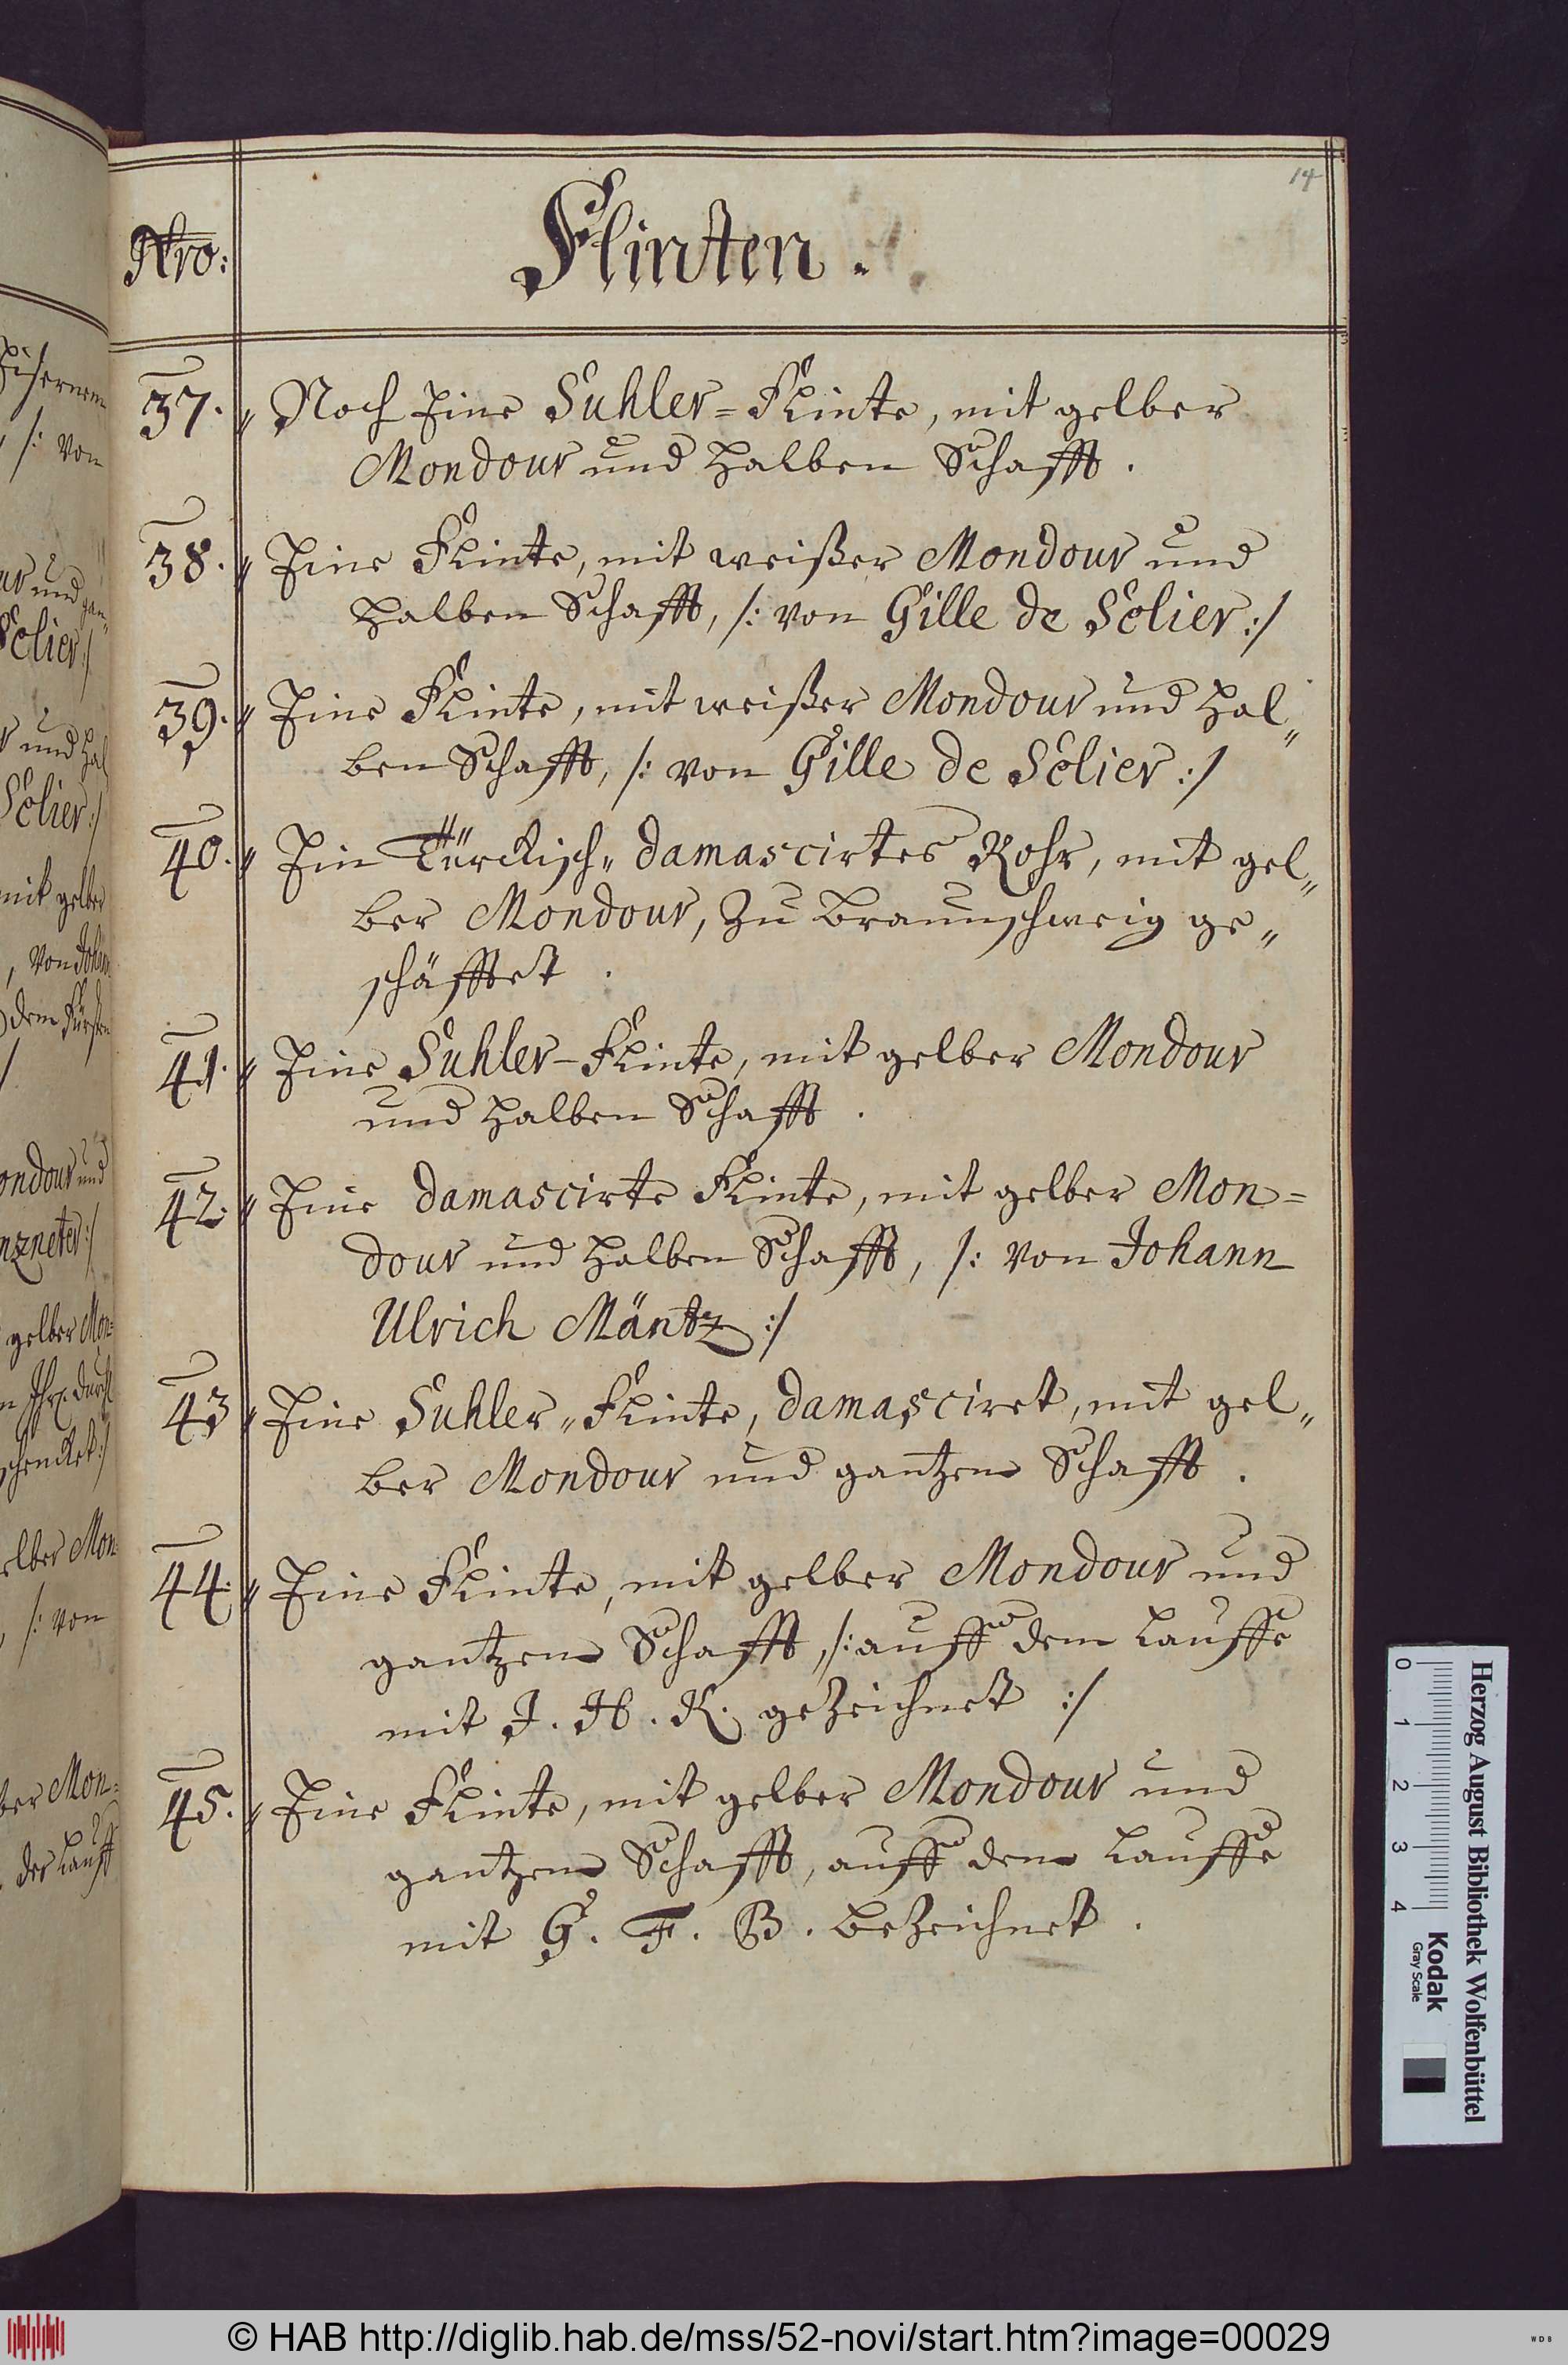 14
Nro:
Flinten.
37. Noch Eine Suhler=Flinte, mit gelber
Mondour und halben Schafft.
38. Eine Flinte, mit weißer Mondour und
halben Schafft, /: von Gille de Solier :/
39. Eine Flinte, mit weißer Mondour und hal„
ben Schafft, /: von Gille de Solier :/
40. Ein Türckisch„ damascirtes Rohr, mit gel„
ber Mondour, zu Braunschweig ge„
schäfftet.
41. Eine Suhler-Flinte, mit gelber Mondour
und halben Schafft.
42. Eine damascirte Flinte, mit gelber Mon=
dour und halben Schafft, /: von Johann
Ulrich Mäntz :/
43 Eine Suhler„Flinte, damasciret, mit gel„
ber Mondour und gantzem Schafft.
44. Eine Flinte, mit gelber Mondour und
gantzem Schafft, /: auff dem Lauffe
mit J. H. K. gezeichnet :/
45. Eine Flinte, mit gelber Mondour und
gantzem Schafft, auff dem Lauffe
mit G. F. B. bezeichnet.
Herzog August Bibliothek Wolfenbüttel
0 1 2 3 4
Kodak
Gray Scale
© HAB http://diglib.hab.de/mss/52-novi/start.htm?image=00029
WDB